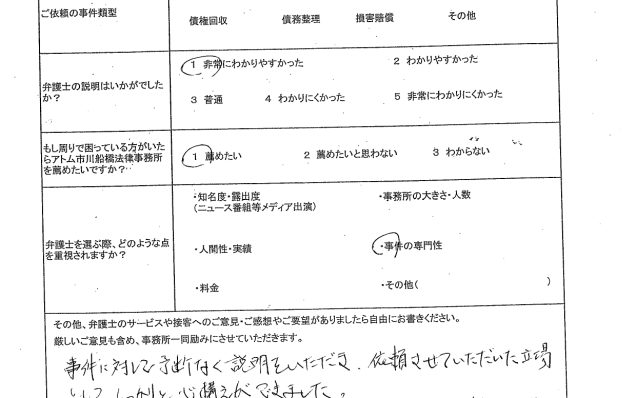 ご依頼の事件類型
債権回収 債務整理 損害賠償 その他
弁護士の説明はいかがでしたか？
1 非常にわかりやすかった 2 わかりやすかった
3 普通 4 わかりにくかった 5 非常にわかりにくかった
もし周りで困っている方がいたらアトム市川船橋法律事務所を薦めたいですか？
1 薦めたい 2 薦めたいと思わない 3 わからない
弁護士を選ぶ際、どのような点を重視されますか？
・知名度・露出度
(ニュース番組等メディア出演)
・事務所の大きさ・人数
・人間性・実績 ・事件の専門性
・料金 ・その他( )
その他、弁護士のサービスや接客へのご意見・ご感想やご要望がありましたら自由にお書きください。
厳しいご意見も含め、事務所一同励みにさせていただきます。
事件に対して予断なく説明をいただき、依頼させていただいた立場
としてしっかりと心構えができました。